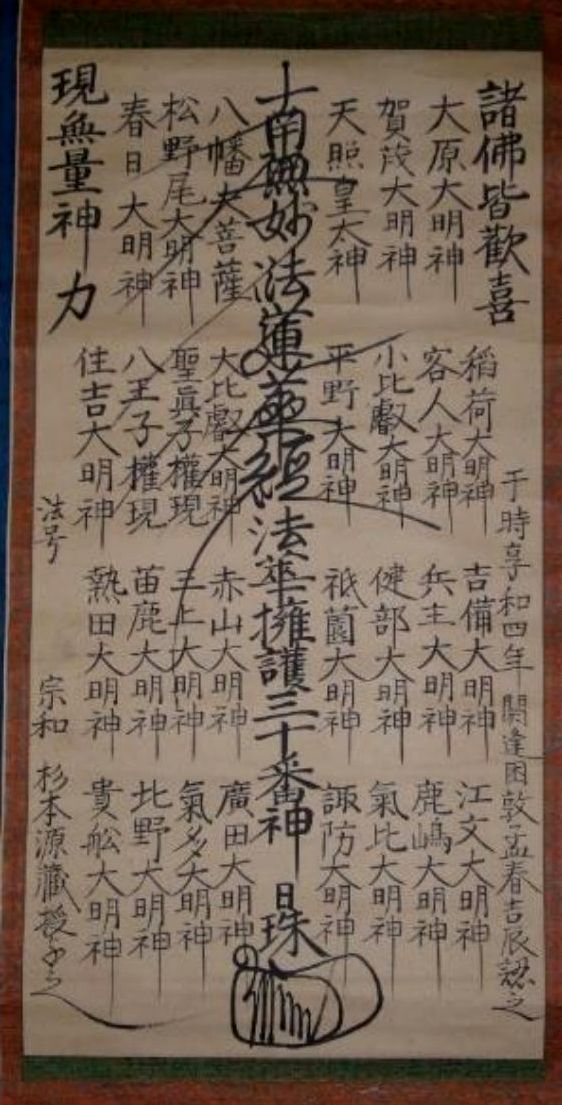 諸佛皆歡喜
于時享和四年 閼逢困敦孟春吉辰認之
大原大明神
賀茂大明神
天照皇太神
稲荷大明神
客人大明神
小比叡大明神
平野大明神
吉備大明神
兵主大明神
健部大明神
祇薗大明神
江文大明神
鹿嶋大明神
氣比大明神
諏防大明神
南無妙法蓮華經法華擁護三十番神
日珠
八幡大菩薩
松野尾大明神
春日大明神
大比叡大明神
聖眞子權現
八王子權現
住吉大明神
赤山大明神
三上大明神
苗鹿大明神
熱田大明神
廣田大明神
氣多大明神
北野大明神
貴舩大明神
現無量神力
法号 宗和 杉本源藏授与之